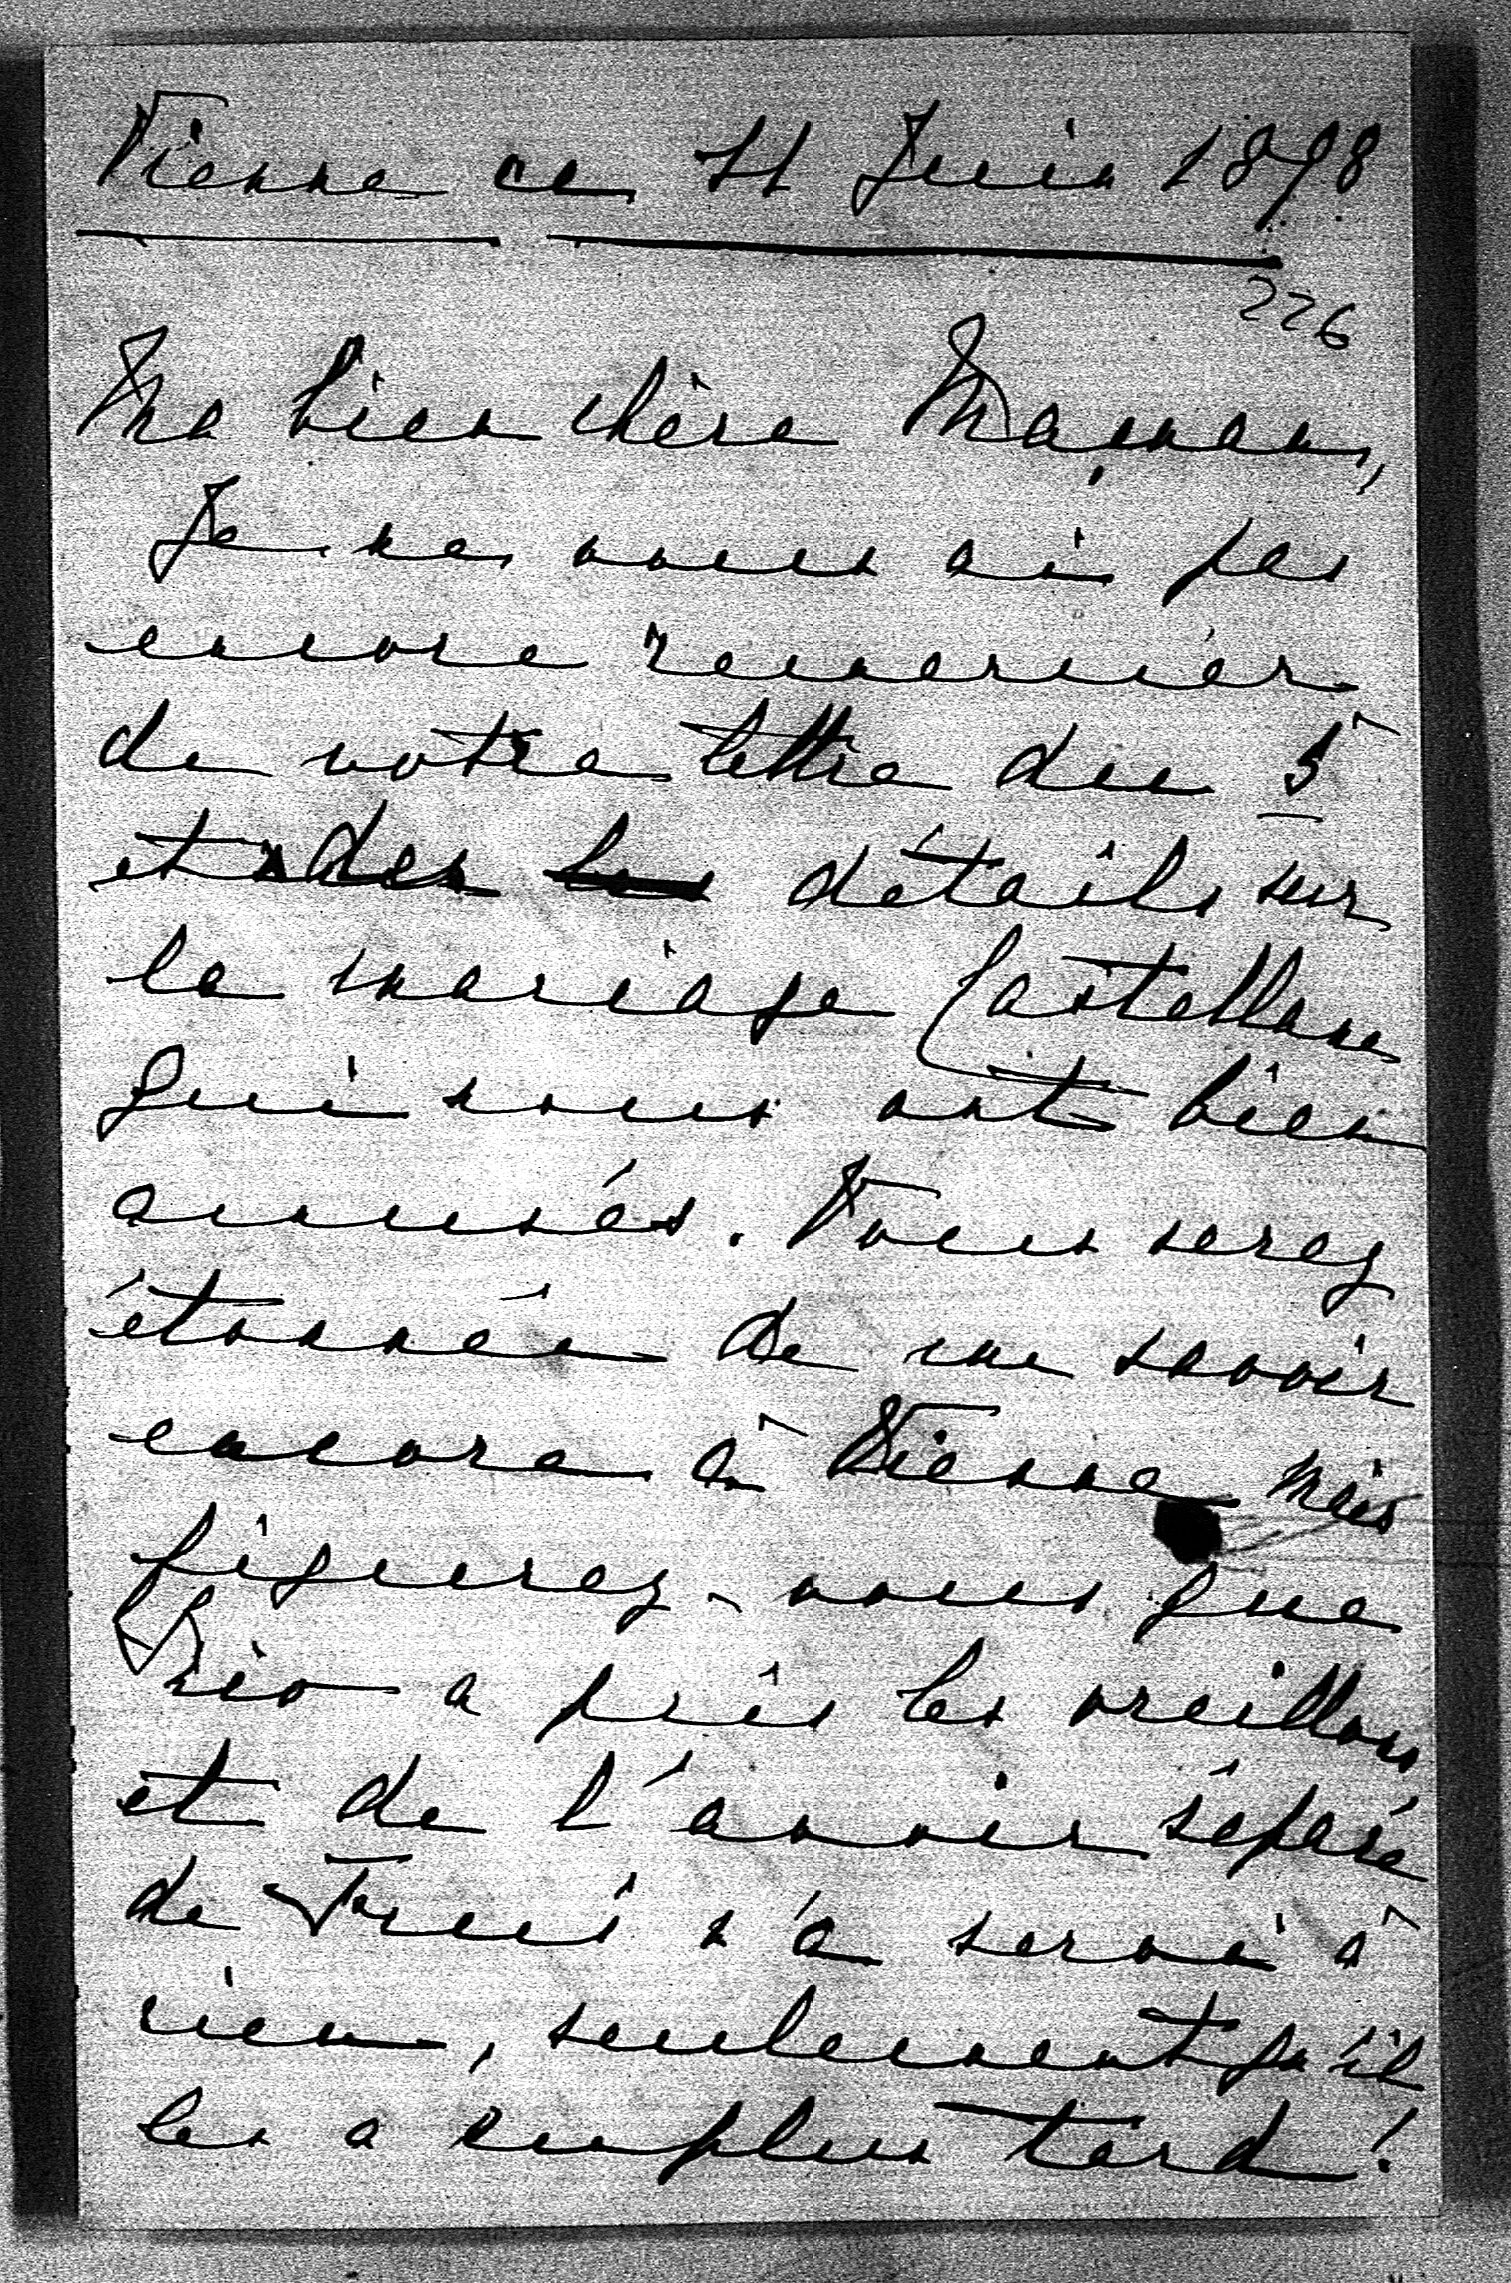 Vienne ce 11 Juin 1898
226
Ma bien chère Maman,
Je ne vous ai pas
encore remercier
de votre lettre du 5
et des détails sur
le mariage Castellane
qui nous ont bien
amusés. Vous serez
étonnée de me savoir
encore à Vienne mais
figurez-vous que
a pris les oreillons
et de l'avoir séparé
de n'a servi à
rien, seulement qu'il
les a eu plus tard!